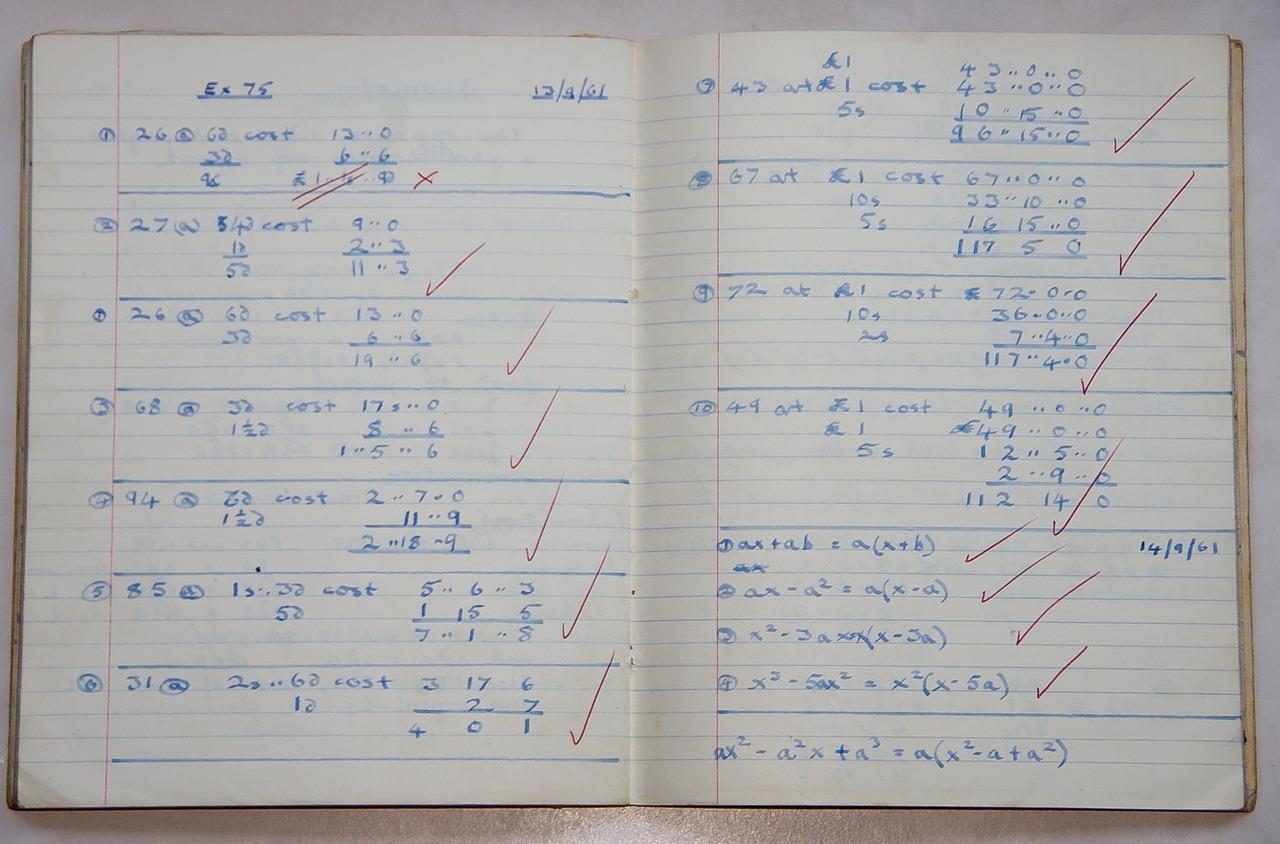 Ex 75 13/9/61
① 26 @ 6d cost 13 ‥ 0
3d 6 ‥ 6
£1 ‥ ‥
② 27 @ 4d cost 9 ‥ 0
1d 2 ‥ 3
5d 11 ‥ 3
① 26 @ 6d cost 13 ‥ 0
3d 6 ‥ 6
19 ‥ 6
③ 68 @ 3d cost 17s ‥ 0
1½d 8 ‥ 6
1 ‥ 5 ‥ 6
④ 94 @ cost 2 ‥ 7 ‥ 0
1½d 11 ‥ 9
2 ‥ 18 ‥ 9
⑤ 85 @ 1s ‥ 3d cost 5 ‥ 6 ‥ 3
5d 1 15 5
7 ‥ 1 ‥ 8
⑥ 31 @ 2s ‥ 6d cost 3 17 6
1d 2 7
4 0 1
£1 43 ‥ 0 ‥ 0
⑦ 43 at £1 cost 43 ‥ 0 ‥ 0
5s 10 ‥ 15 ‥ 0
96 ‥ 15 ‥ 0
⑧ 67 at £1 cost 67 ‥ 0 ‥ 0
10s 33 ‥ 10 ‥ 0
5s 16 15 ‥ 0
117 5 0
⑨ 72 at £1 cost £72 ‥ 0 ‥ 0
10s 36 ‥ 0 ‥ 0
2s 7 ‥ 4 ‥ 0
117 ‥ 4 ‥ 0
⑩ 49 at £1 cost 49 ‥ 0 ‥ 0
£1 £49 ‥ 0 ‥ 0
5s 12 ‥ 5 ‥ 0
2 ‥ 9 ‥ 0
112 14 0
① ax + ab = a(x+b) 14/9/61
ax
② ax - a² = a(x-a)
③ x² - 3ax x(x-3a)
④ x³ - 5ax² = x²(x-5a)
ax² - a²x + a³ = a(x² - a + a²)